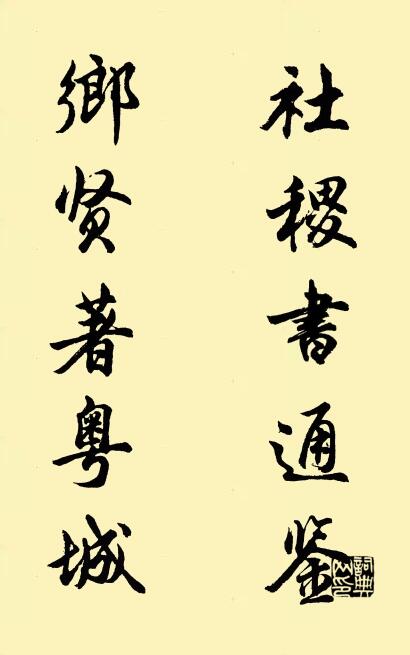 社稷書通鉴
鄉贤著粤城